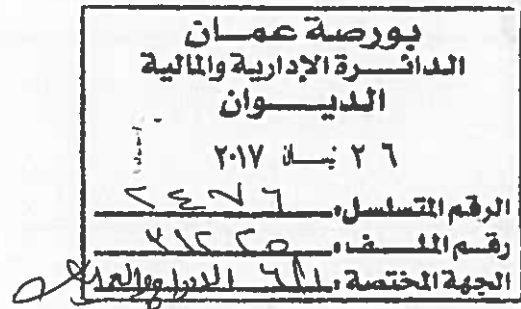 بورصة عمان
الدائرة الإدارية والمالية
الديوان
٢٦ نيسان ٢٠١٧
الرقم المتسلسل: ٢٤٧٦
رقم الملف:
الجهة المختصة: